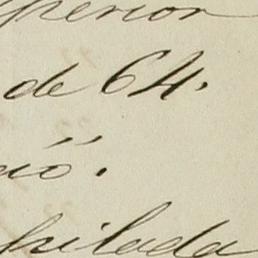 perior
de 64.
ió.
hilada